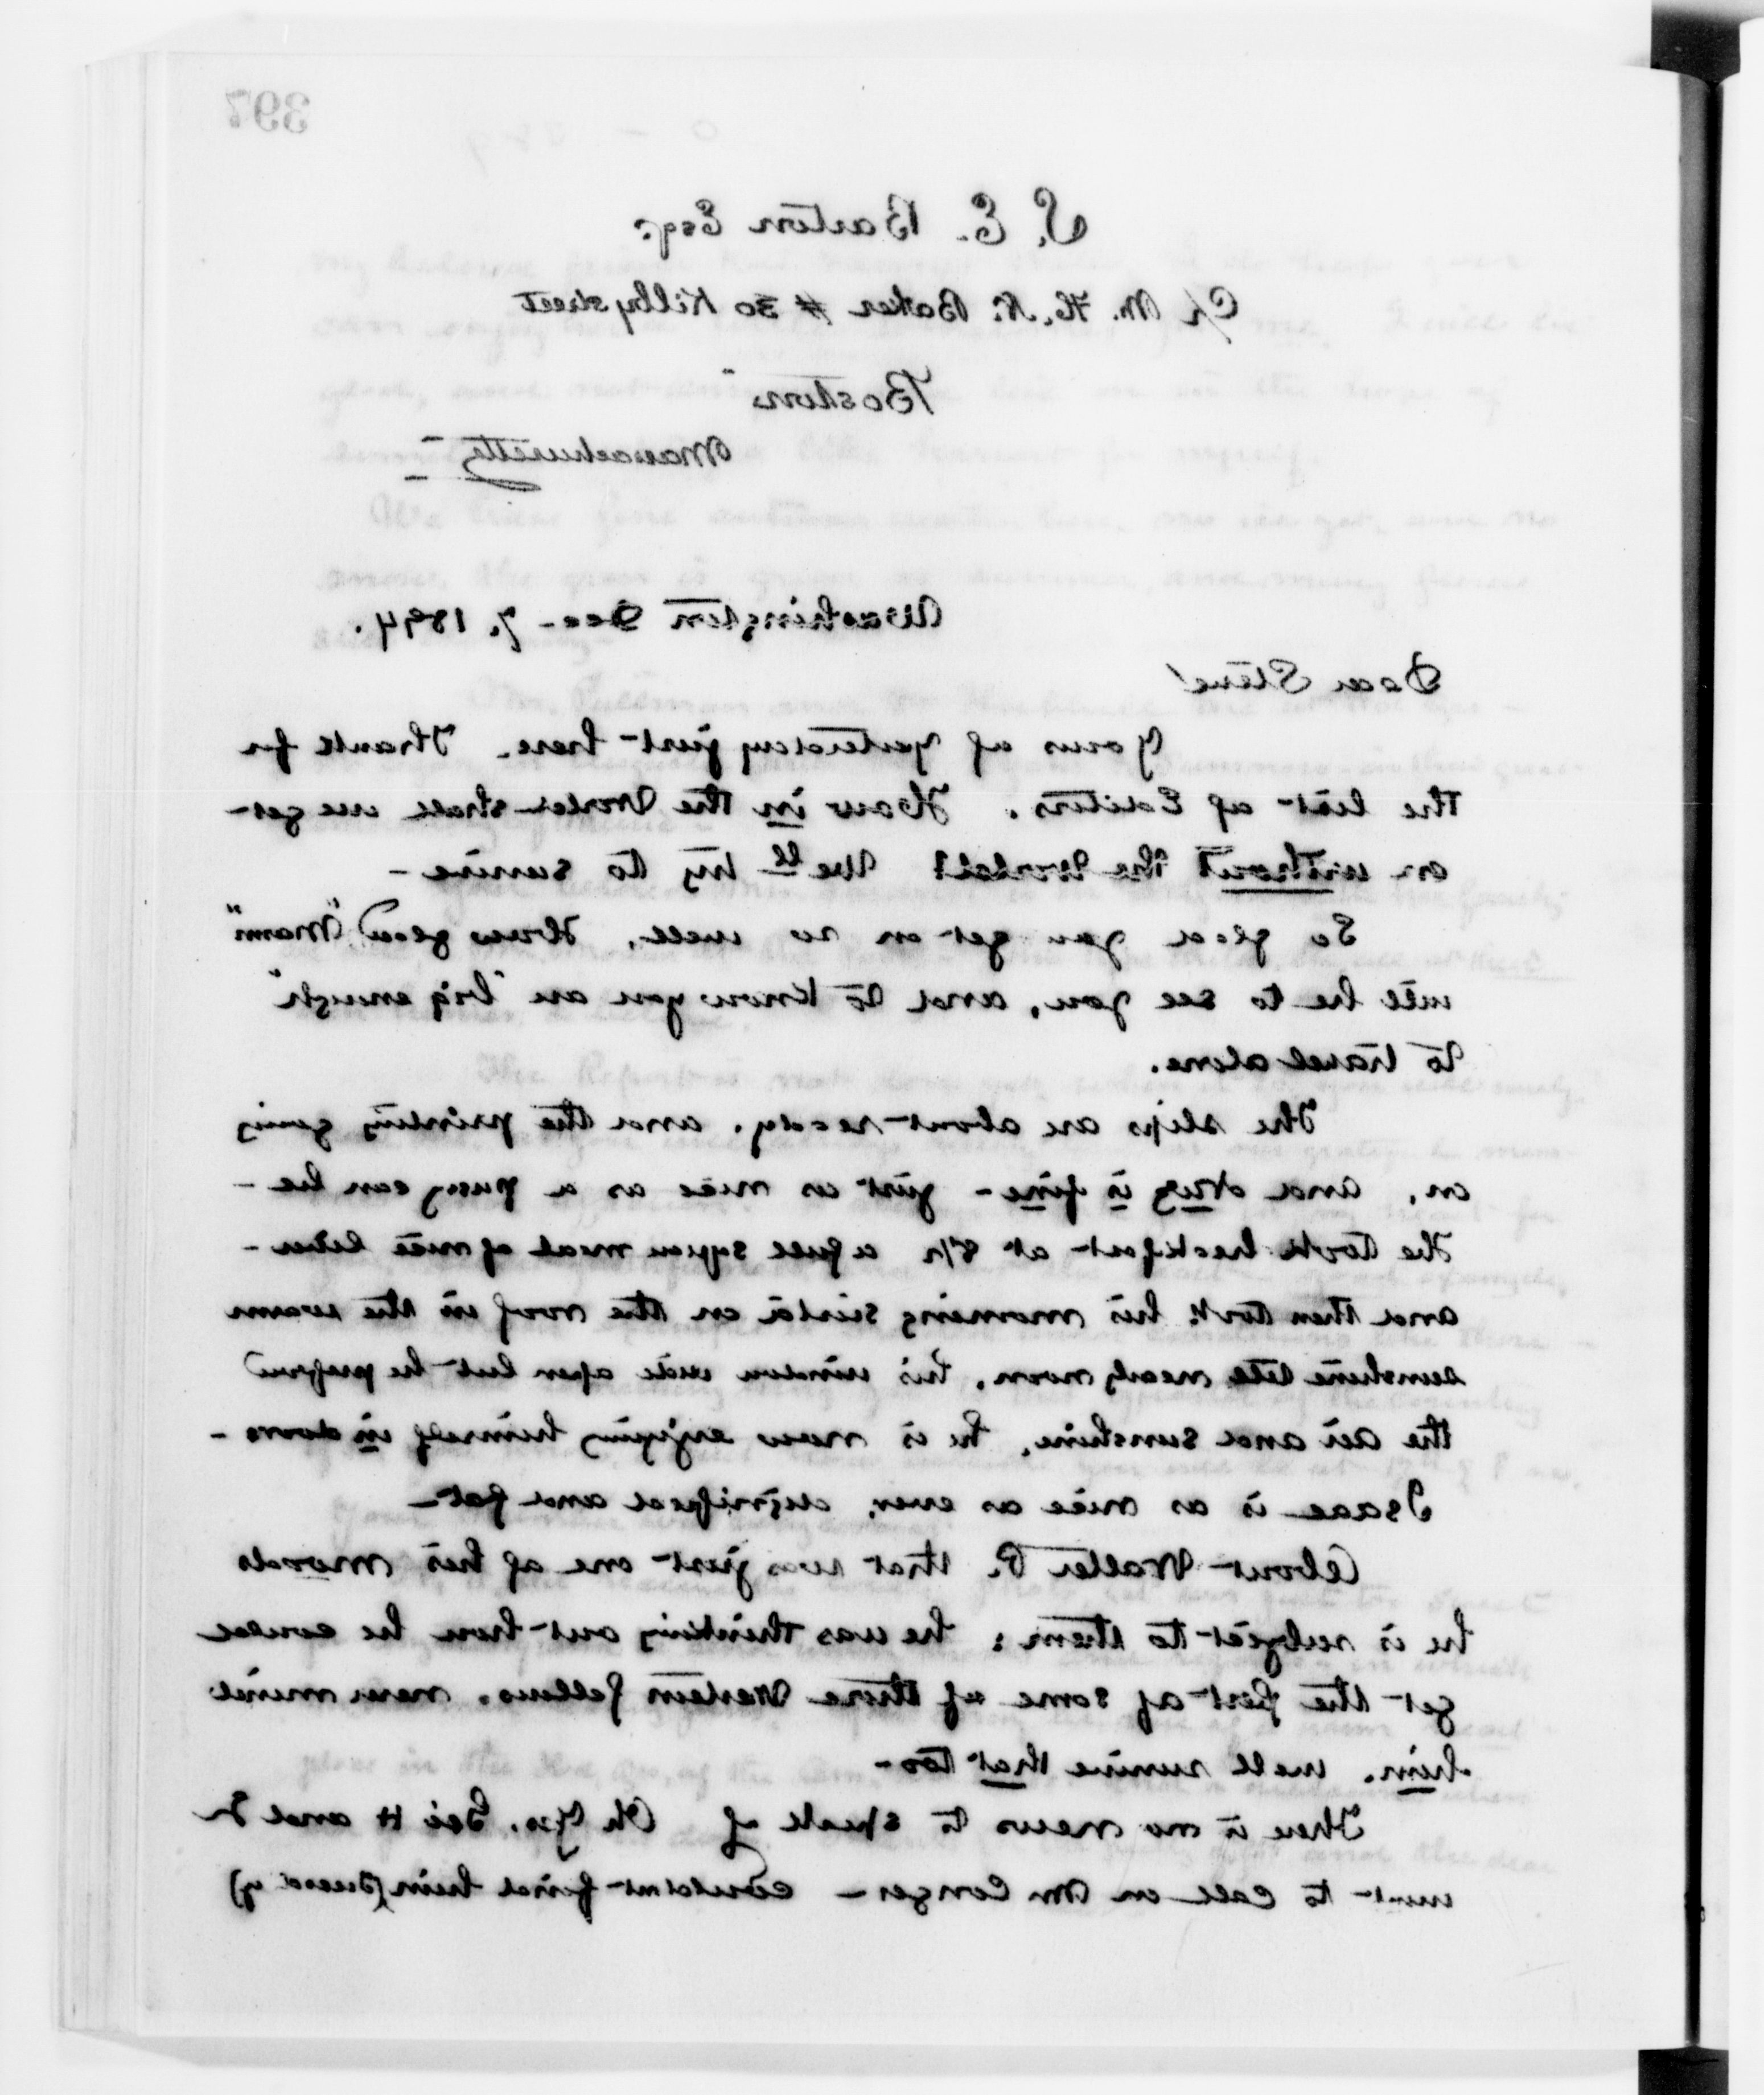 397
S. E. Barton Esq.
C/o Mr. H. N. Baker # 30 Kilby street
Boston
Massachusetts
Washington Dec - 7. 1894.
Dear Steve
Yours of yesterday just here. Thanks for
the list of Editors. How in the World shall we get
on without the World? We'll try to survive -
So glad you get on so well, How glad "Mam"
will be to see you, and to know you are "big enough"
to travel alone.
The slips are about ready, and the printing going
on, and is fine - just as nice as a pussy can be -
He took breakfast at 8½ a full square meal of nice liver -
and then took his morning siesta on the roof in the warm
sunshine till nearly noon, his window wide open but he prefered
the air and sunshine, he is now enjoying himself in doors -
Isaac is as nice as ever, dignified and fat -
About Walter P. that was just one of his moods
he is subject to them; he was thinking out how he could
get the best of some of those Western fellows. never mind
him. we'll survive that too -
There is no news to speak of Oh Yes. H and I
went to call on Mr Conger - couldn't find him